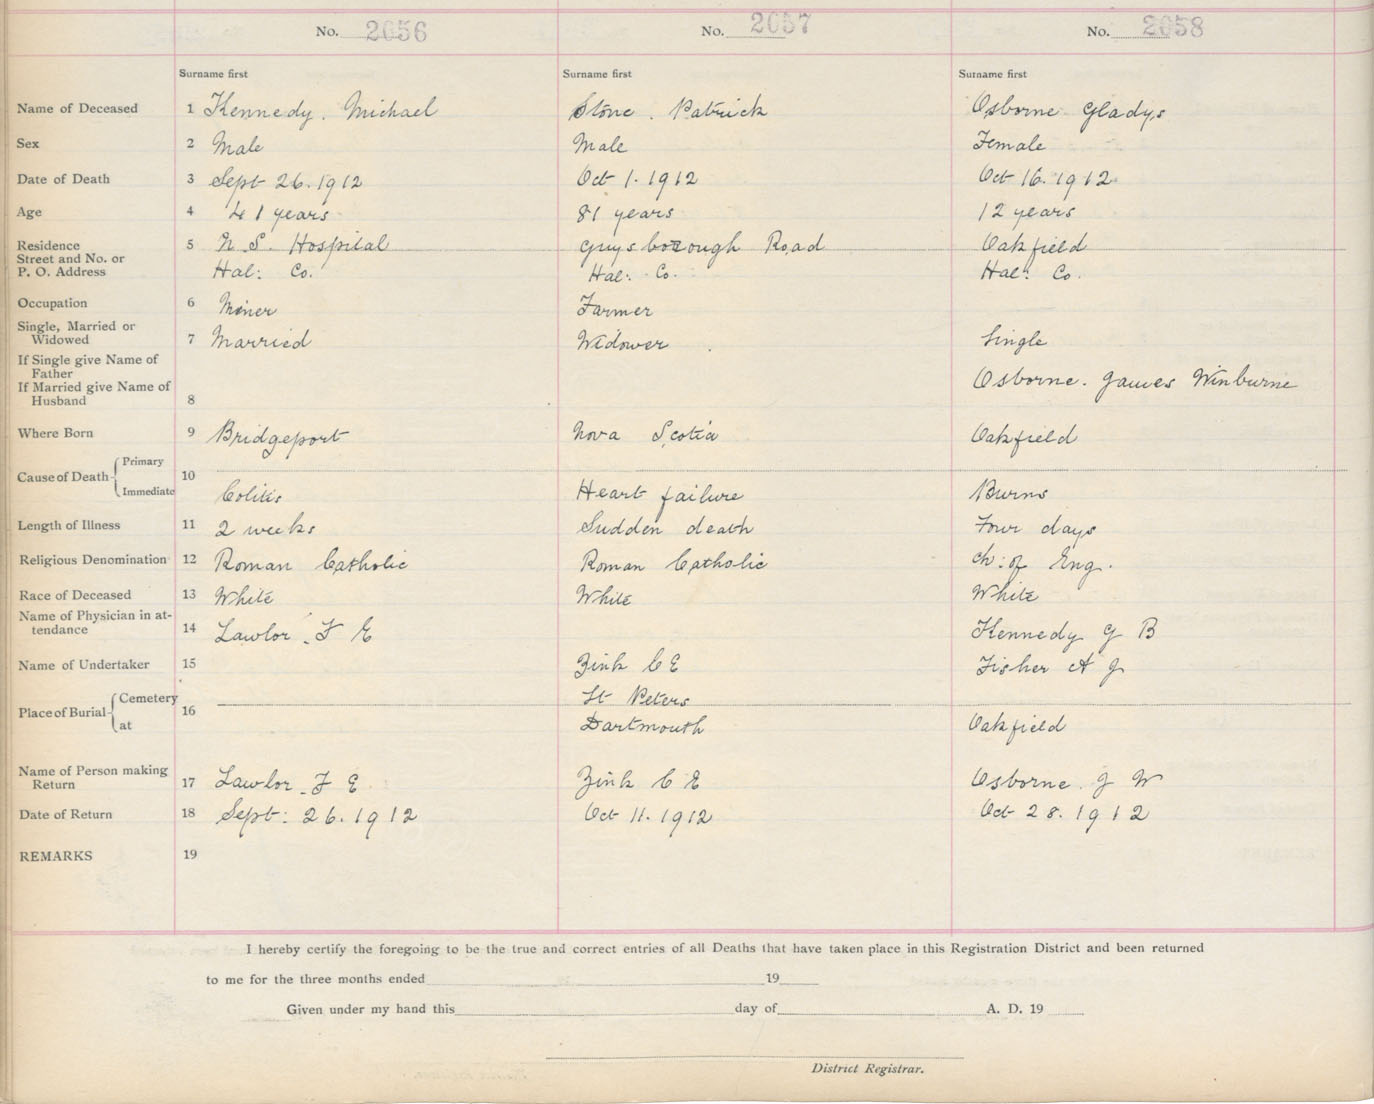 No. 2056 No. 2057 No. 2058
Surname first Surname first Surname first
Name of Deceased 1 Kennedy. Michael Stone. Patrick Osborne Gladys
Sex 2 Male Male Female
Date of Death 3 Sept 26. 1912 Oct 1. 1912 Oct 16. 1912
Age 4 41 years 81 years 12 years
Residence 5 N. S. Hospital Guysborough Road Oakfield
Street and No. or
P. O. Address Hal: Co. Hal: Co. Hal: Co.
Occupation 6 Miner Farmer
Single, Married or
Widowed 7 Married Widower Single
If Single give Name of
Father
If Married give Name of Osborne. James Winburne
Husband 8
Where Born 9 Bridgeport Nova Scotia Oakfield
Cause of Death Primary 10
Immediate Colitis Heart failure Burns
Length of Illness 11 2 weeks Sudden death Four days
Religious Denomination 12 Roman Catholic Roman Catholic Ch: of Eng.
Race of Deceased 13 White White White
Name of Physician in at-
tendance 14 Lawlor. F E Kennedy G B
Name of Undertaker 15 Zink C E Fisher A J
Place of Burial Cemetery 16 St Peters
at Dartmouth Oakfield
Name of Person making
Return 17 Lawlor. F E Zink C E Osborne. J W
Date of Return 18 Sept: 26. 1912 Oct 11. 1912 Oct 28. 1912
REMARKS 19
I hereby certify the foregoing to be the true and correct entries of all Deaths that have taken place in this Registration District and been returned
to me for the three months ended 19
Given under my hand this day of A. D. 19
District Registrar.